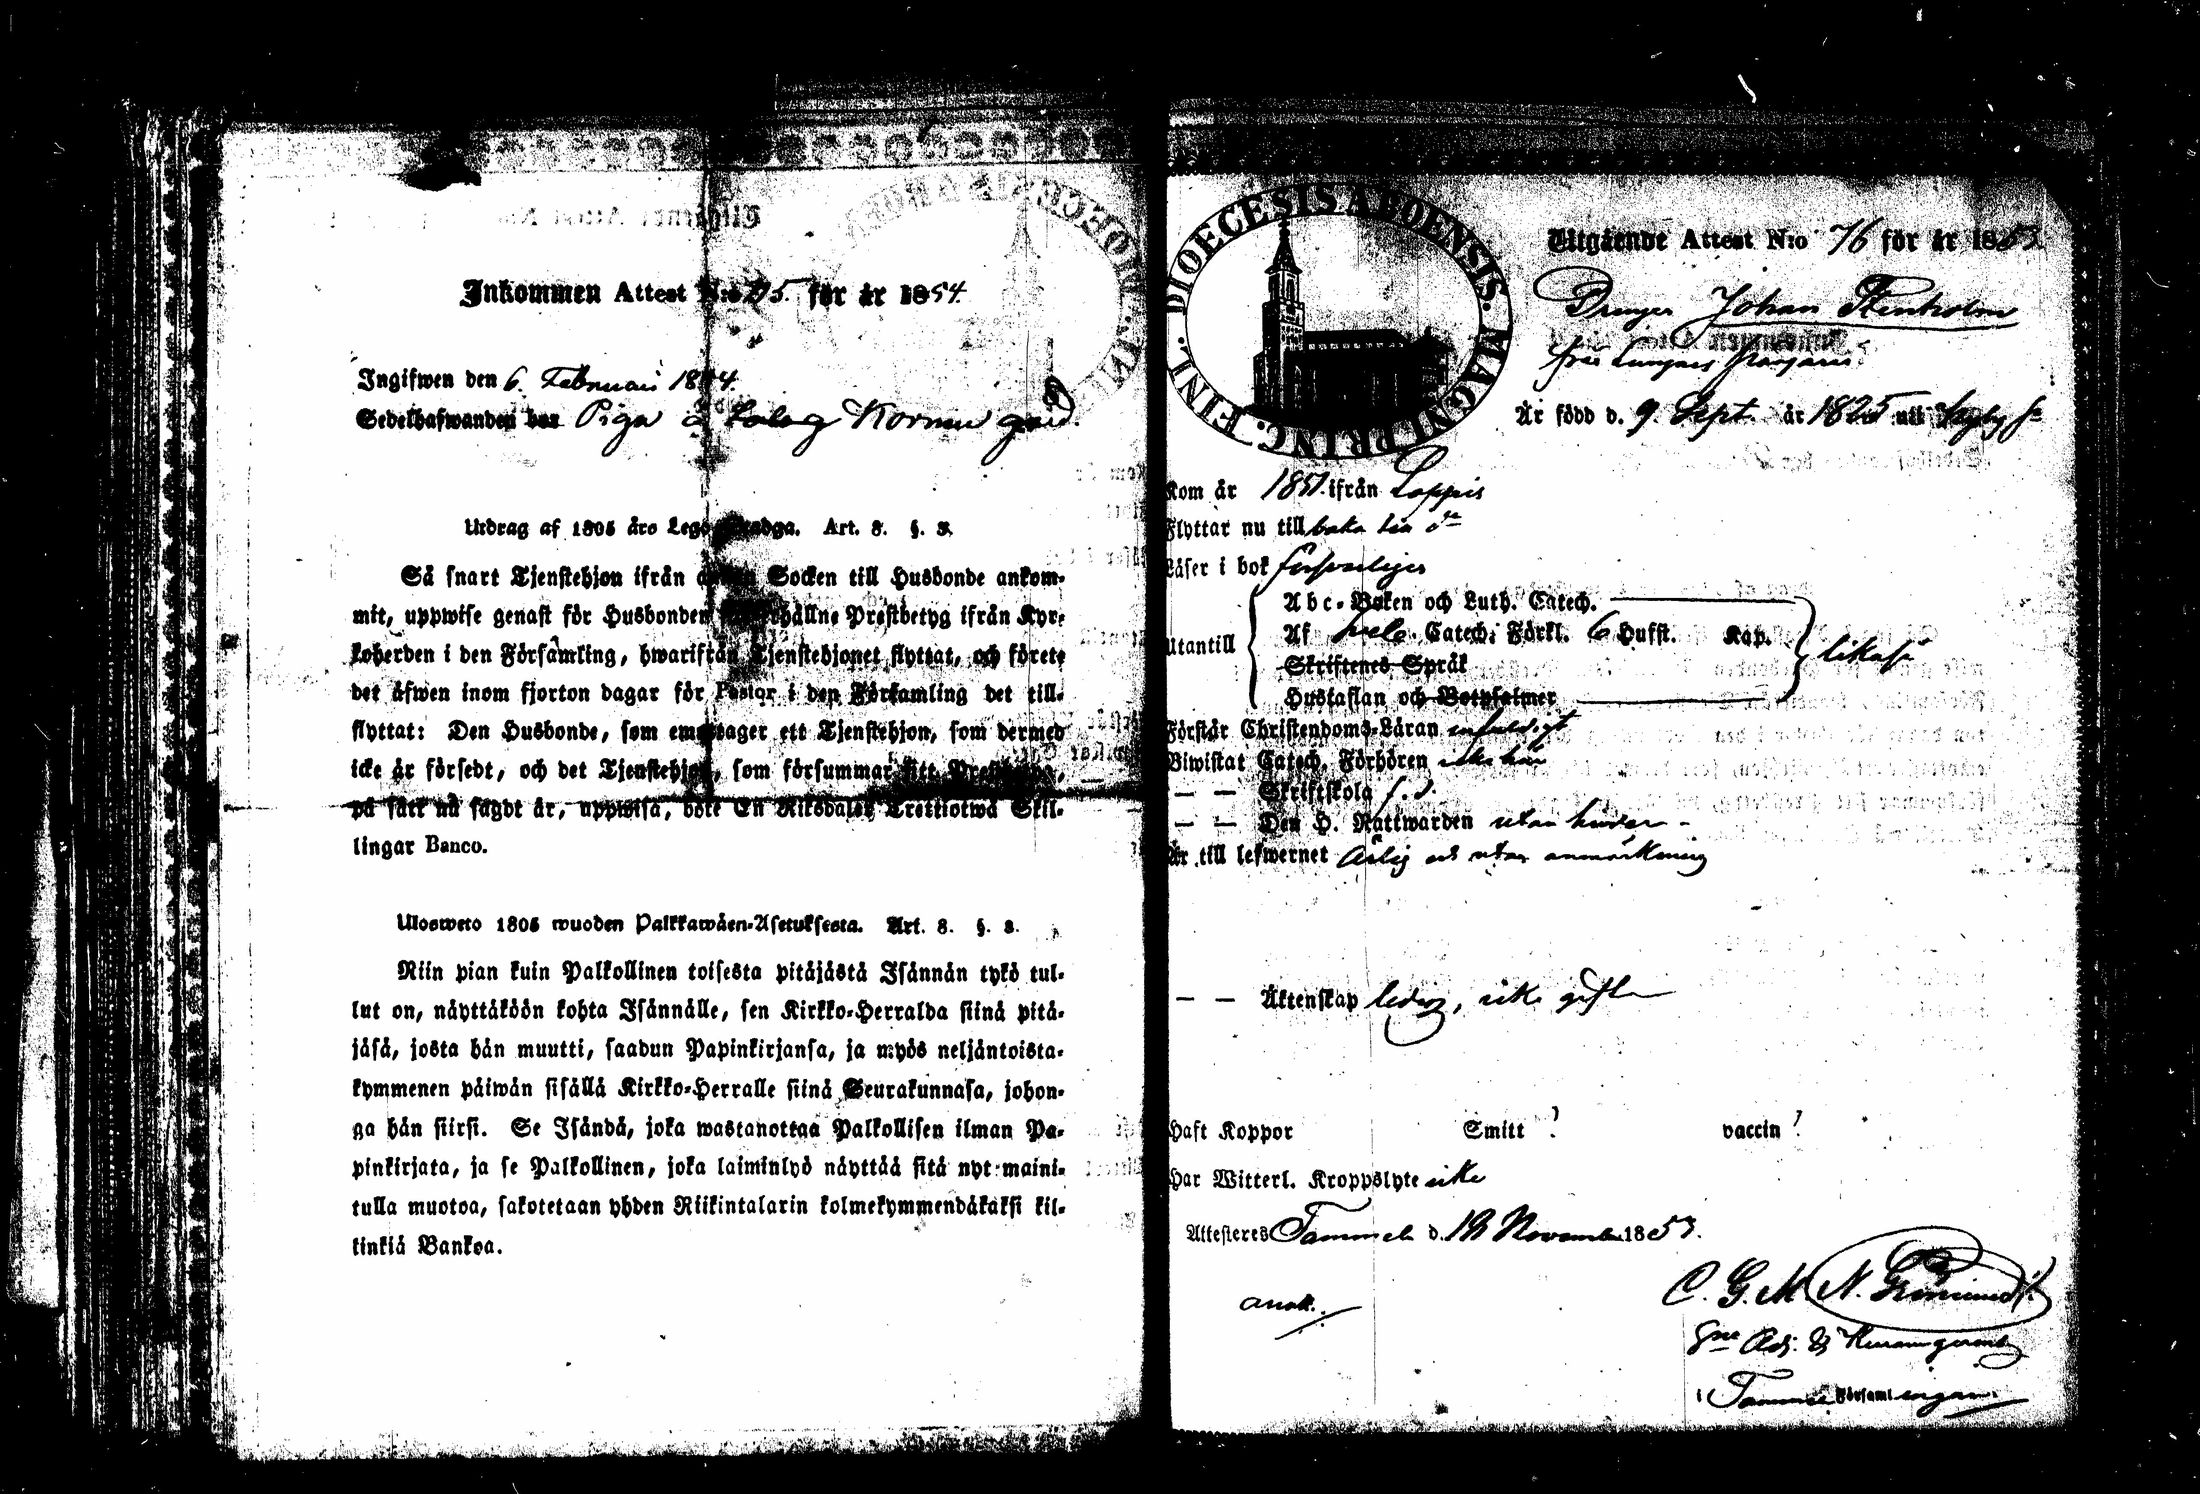 Inkommen Attest N:o 95. för år 1854.
Ingifwen den 6. Februari 1854.
Sedelhafwanden har Piga å Kornu gård.
Utdrag af 1805 års Lego-Stadga. Art. 8. §. 3.
Så snart Tjenstehjon ifrån annan Socken till Husbonde ankom-
mit, uppwise genast för Husbonden thållne Prestbetyg ifrån Kyr-
koherden i den Församling, hwarifrån Tjenstehjonet flyttat, och förete
det äfwen inom fjorton dagar för Pastor i den Församling det till-
flyttat: Den Husbonde, som emottager ett Tjenstehjon, som dermed
icke är försedt, och det Tjenstehjon, som försummar sitt Prestbetyg,
på sätt nu sagdt är, uppwisa, böte En Riksdaler Trettiotwå Skil-
lingar Banco.
Uloswero 1805 wuoden Palkkawäen-Asetuksesta. Art. 8. §. 3.
Niin pian kuin Palkollinen toisesta pitäjästä Isännän tykö tul-
lut on, näyttäköön kohta Isännälle, sen Kirkko-Herralda siinä pitä-
jäsä, josta hän muutti, saadun Papinkirjansa, ja myös neljäntoista-
kymmenen päiwän sisällä Kirkko-Herralle siinä Seurakunnasa, johon-
ga hän siirsi. Se Isändä, joka wastanottaa Palkollisen ilman Pa-
pinkirjata, ja se Palkollinen, joka laiminlyö näyttää sitä nyt maini-
tulla muotoa, sakotetaan yhden Riikintalarin kolmekymmendäkaksi kil-
linkiä Bankoa.
DIOECESIS ABOENSIS. MAGNI PRINC. FINL.
Utgående Attest N:o 76 för år 1853
Drenger Johan Stenholm
från
Är född d. 9. Sept. år 1825 uti
Kom år 1851. ifrån Loppis
Flyttar nu till baka
Läser i bok försvarligen
Utantill
Abc-Boken och Luth. Catech.
Af Catech. Förkl. 6 Hufst. Kap.
Skriftenes Språk
Hustaflan och Botpsalmer
likaså
Förstår Christendoms-Läran enfaldigt
Biwistat Catech. Förhören icke här
— — Skriftskola f. d.
— — Den H. Nattwarden utan hinder
Är till lefwernet ärlig och utan anmärkning
— — Äktenskap ledig, icke gift
Haft Koppor Smitt ? vaccin ?
Har Witterl. Kroppslyte icke
Attesteres Tammela d. 18 November 1853.
C. G. M. N.
Adj.
i Tammela Församlingar.